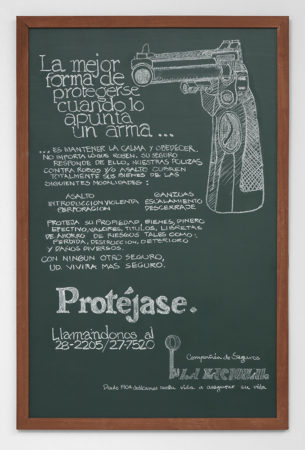 La mejor
forma de
protegerse
cuando lo
apunta
un arma...
... ES MANTENER LA CALMA Y OBEDECER.
NO IMPORTA LO QUE ROBEN, SU SEGURO
RESPONDE DE ELLO, NUESTRAS POLIZAS
CONTRA ROBOS Y/O ASALTO CUBREN
TOTALMENTE SUS BIENES DE LAS
SIGUIENTES MODALIDADES:
ASALTO GANZUAS
INTRODUCCION VIOLENTA ESCALAMIENTO
PERFORACION DESCERRAJE
PROTEJA SU PROPIEDAD, BIENES, DINERO
EFECTIVO, VALORES, TITULOS, LIBRETAS
DE AHORRO DE RIESGOS TALES COMO:
PERDIDA, DESTRUCCION, DETERIORO
Y DAÑOS DIVERSOS.
CON NINGUN OTRO SEGURO,
UD. VIVIRA MAS SEGURO.
Protéjase.
Llamándonos al
28-2205/27-7520
Compañía de Seguros
La Nacional
Desde 1904 dedicamos nuestra vida a asegurar su vida